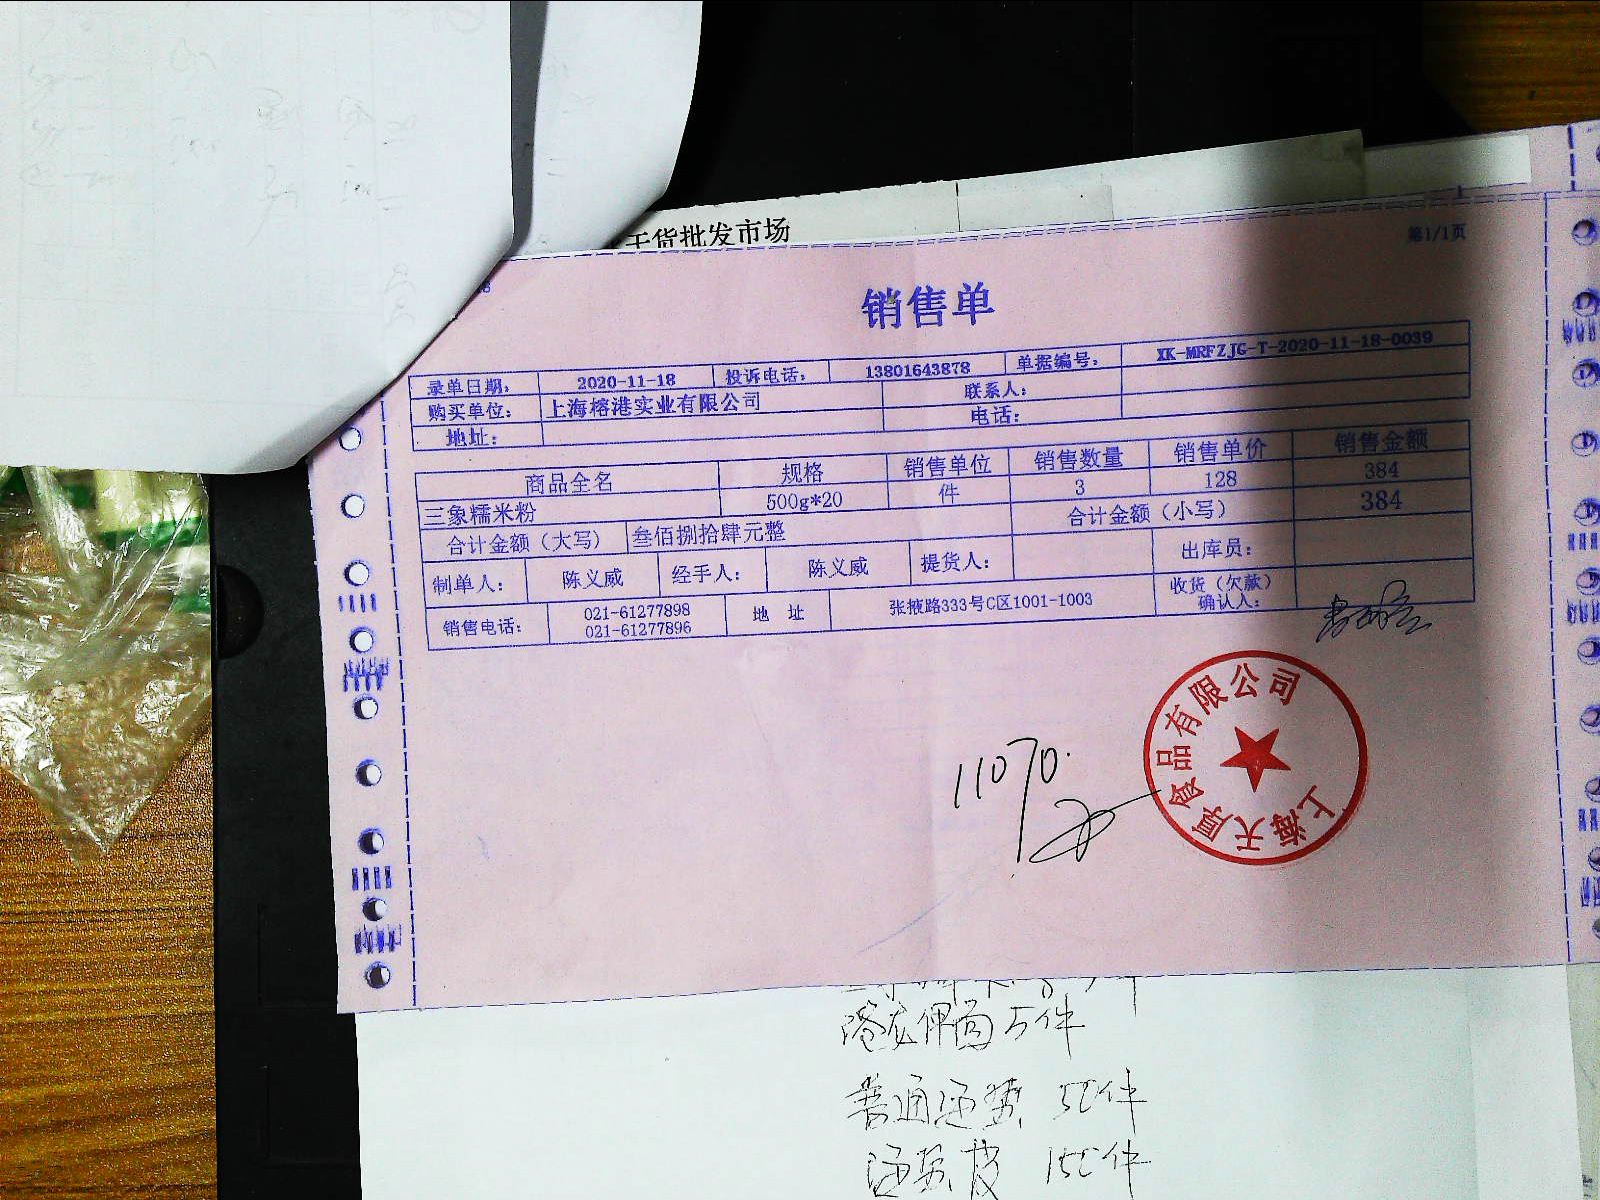 干货批发市场
第1/1页
销售单
录单日期: 2020-11-18 投诉电话: 13801643878 单据编号: XK-MRFZJG-T-2020-11-18-0039
购买单位: 上海榕港实业有限公司 联系人:
地址: 电话:
商品全名 规格 销售单位 销售数量 销售单价 销售金额
三象糯米粉 500g*20 件 3 128 384
合计金额（大写） 叁佰捌拾肆元整 合计金额（小写） 384
制单人: 陈义威 经手人: 陈义威 提货人: 出库员:
销售电话: 021-61277898 021-61277896 地 址 张掖路333号C区1001-1003 收货（欠款）确认人:
上海天淂食品有限公司
11070.
5件
普通 50件
150件